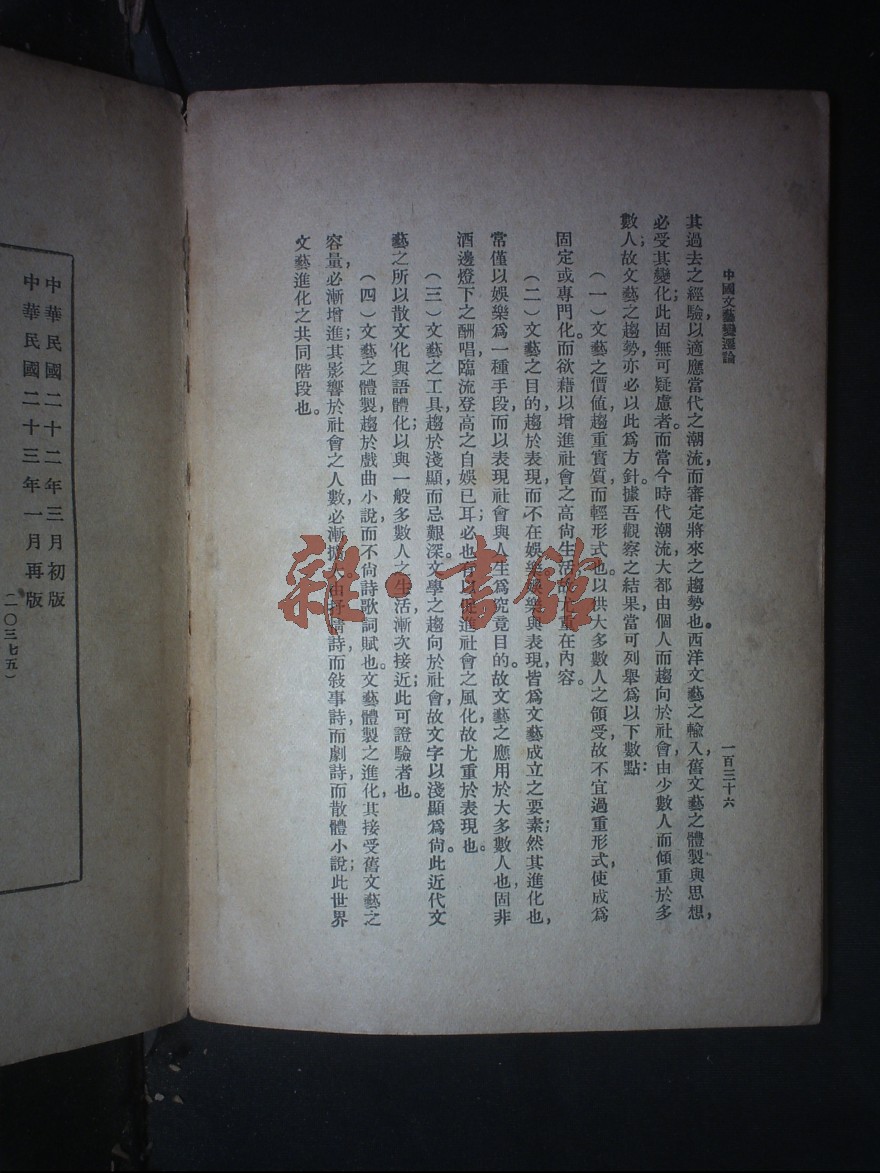 中國文藝變遷論
一百三十六
其過去之經驗,以適應當代之潮流,而審定將來之趨勢也。西洋文藝之輸入,舊文藝之體製與思想,
必受其變化;此固無可疑慮者。而當今時代潮流,大都由個人而趨向於社會,由少數人而傾重於多
數人;故文藝之趨勢,亦必以此爲方針。據吾觀察之結果,當可列舉爲以下數點:
(一)文藝之價値,趨重實質而輕形式也。以供大多數人之領受,故不宜過重形式,使成爲
固定或專門化。而欲藉以增進社會之高尙生活,故尤重在內容。
(二)文藝之目的趨於表現,而不在娛樂。娛樂與表現,皆爲文藝成立之要素;然其進化也,
常僅以娛樂爲一種手段,而以表現社會與人生爲究竟目的。故文藝之應用於大多數人也,固非
酒邊燈下之酬唱,臨流登高之自娛已耳;必也有以促進社會之風化,故尤重於表現也。
(三)文藝之工具,趨於淺顯而忌艱深。文學之趨向於社會,故文字以淺顯爲尙。此近代文
藝之所以散文化與語體化;以與一般多數人之生活漸次接近;此可證驗者也。
(四)文藝之體製,趨於戲曲小說,而不尙詩歌詞賦也。文藝體製之進化,其接受舊文藝之
容量,必漸增進;其影響於社會之人數,必漸擴大。由抒情詩而敍事詩,而劇詩,而散體小說;此世界
文藝進化之共同階段也。
中華民國二十二年三月初版
中華民國二十三年一月再版
(二〇三七五)
雜·書館